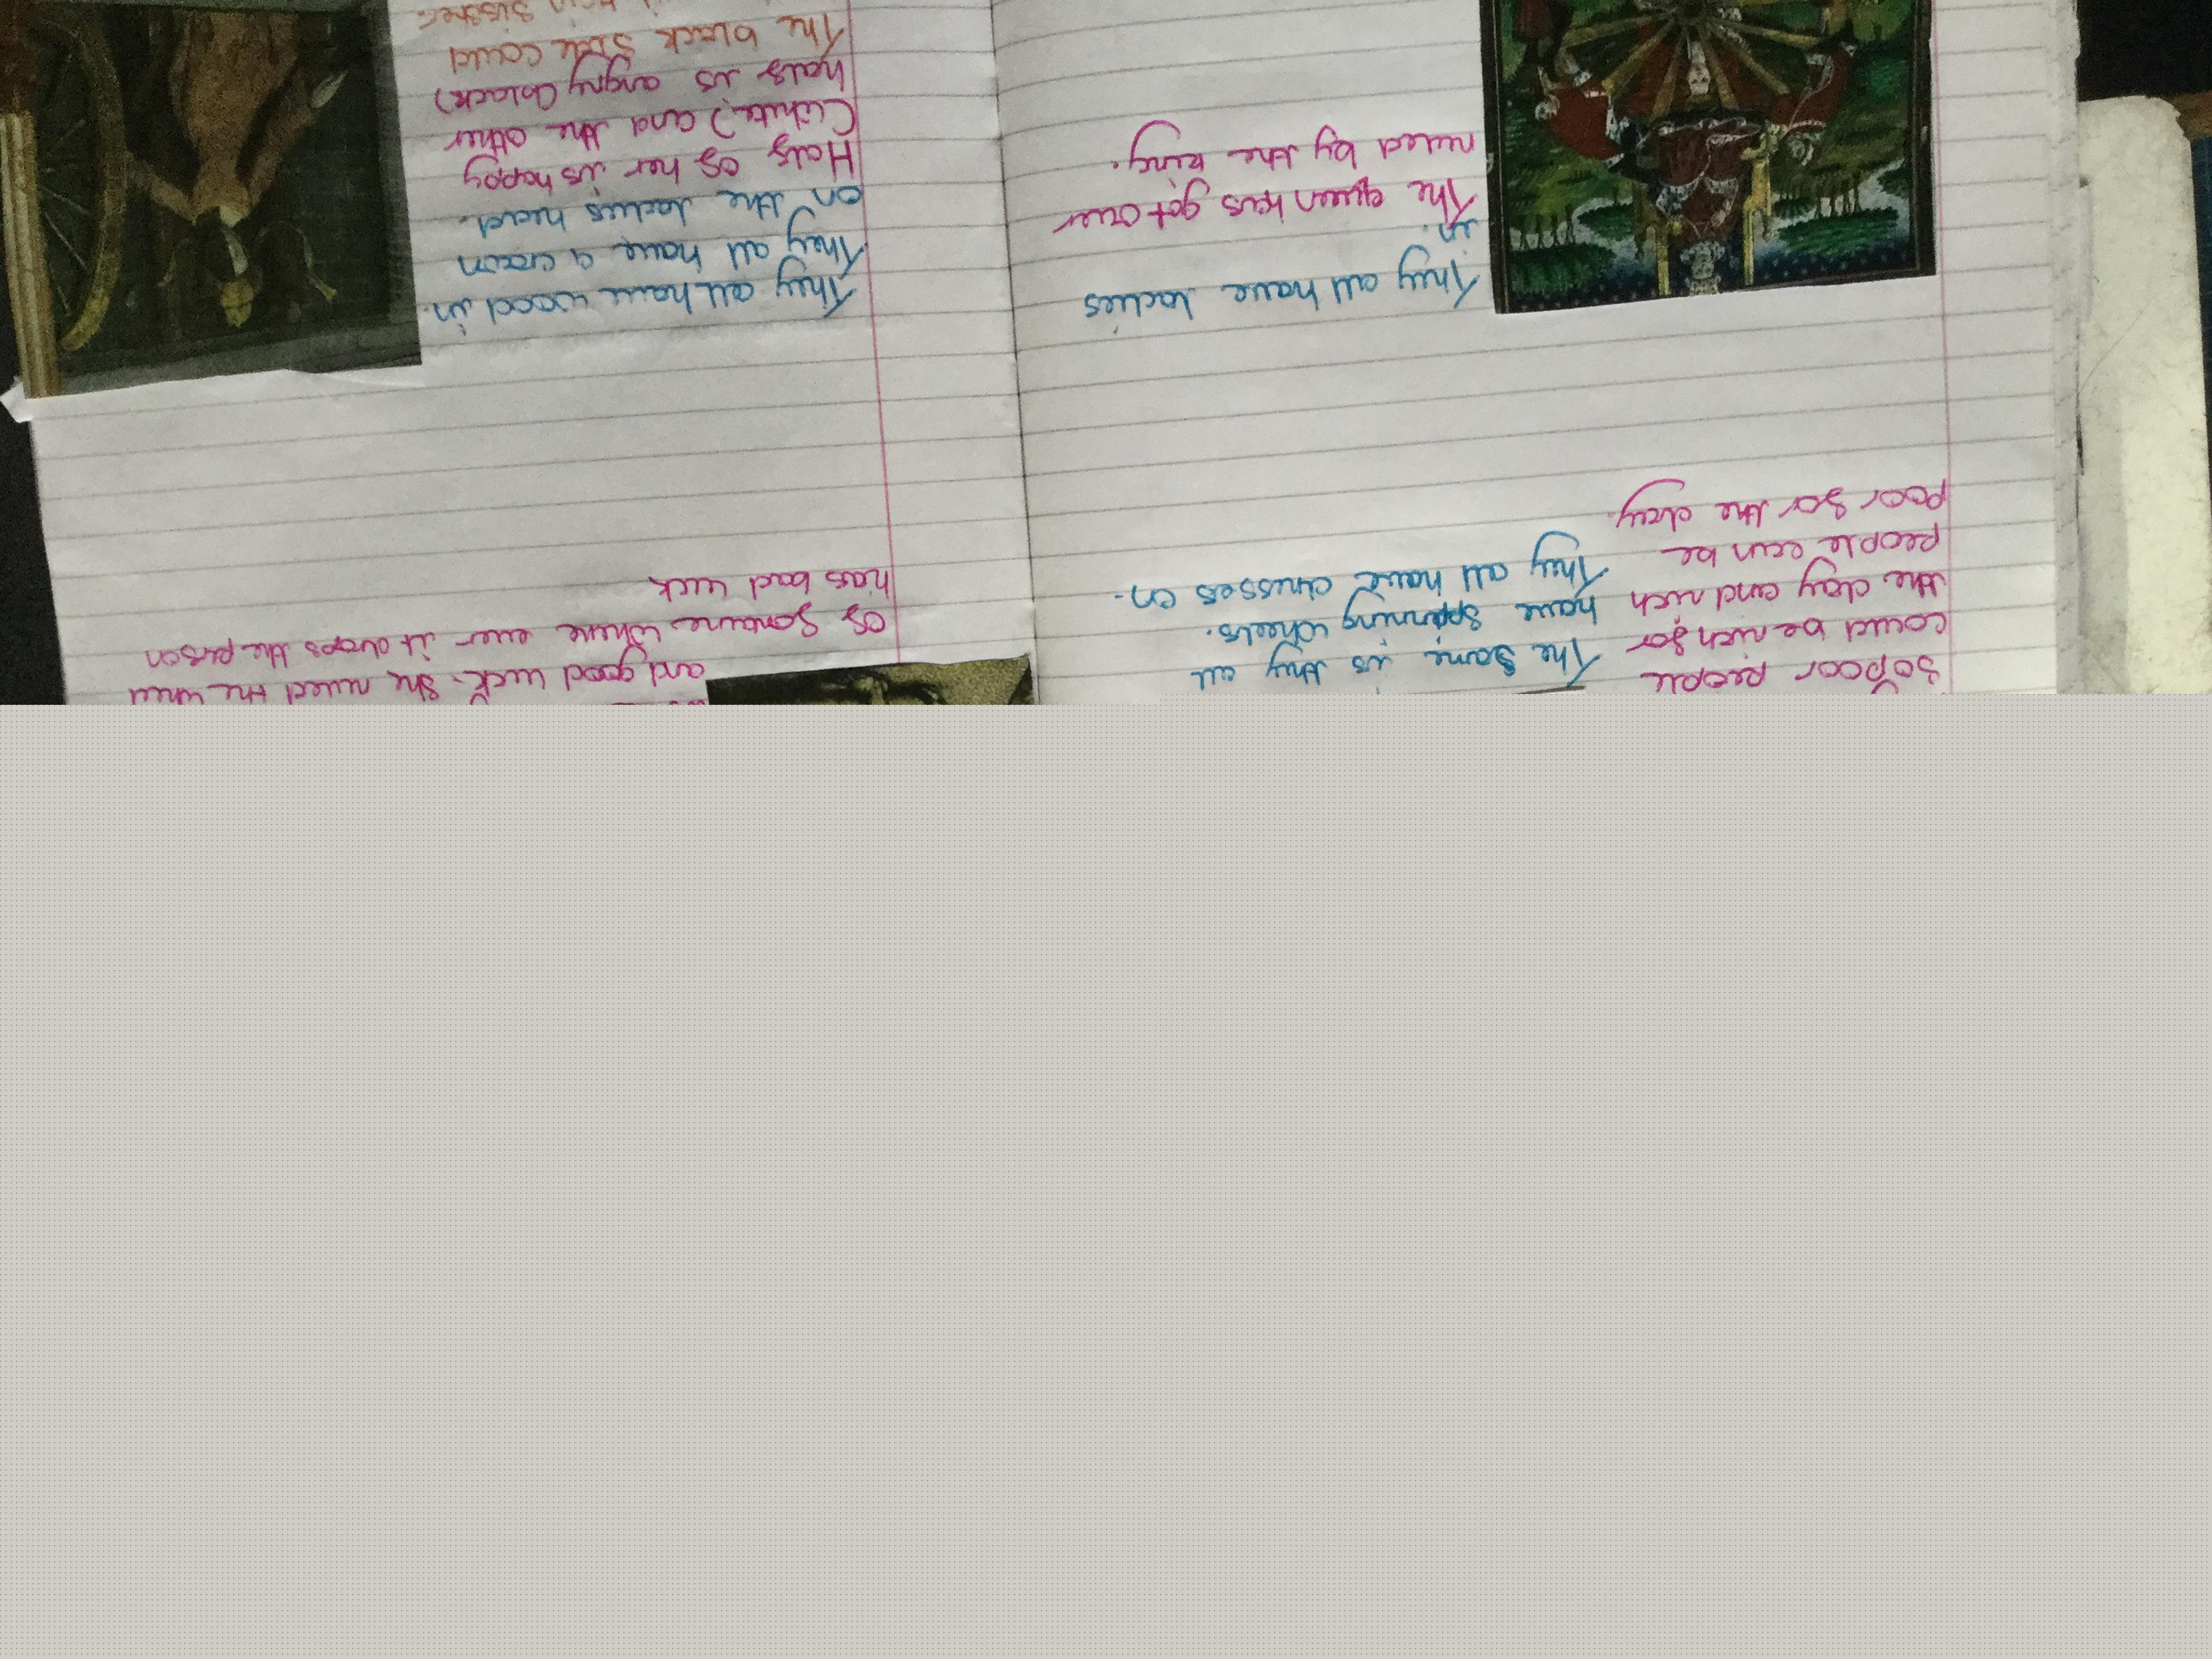 So poor people
could be rich for
the day and rich
people can be
poor for the day.
The same is they all
have spinning wheels.
They all have crosses on.
They all have ladies
in.
The queen has got over
ruled by the king.
and good luck. She ruled the wheel
of fortune where ever it drops the person
has bad luck
They all have wood in.
They all have a crown
on the ladies head.
Half of her is happy
(white) and the other
half is angry (black)
The black side could
twin sister.